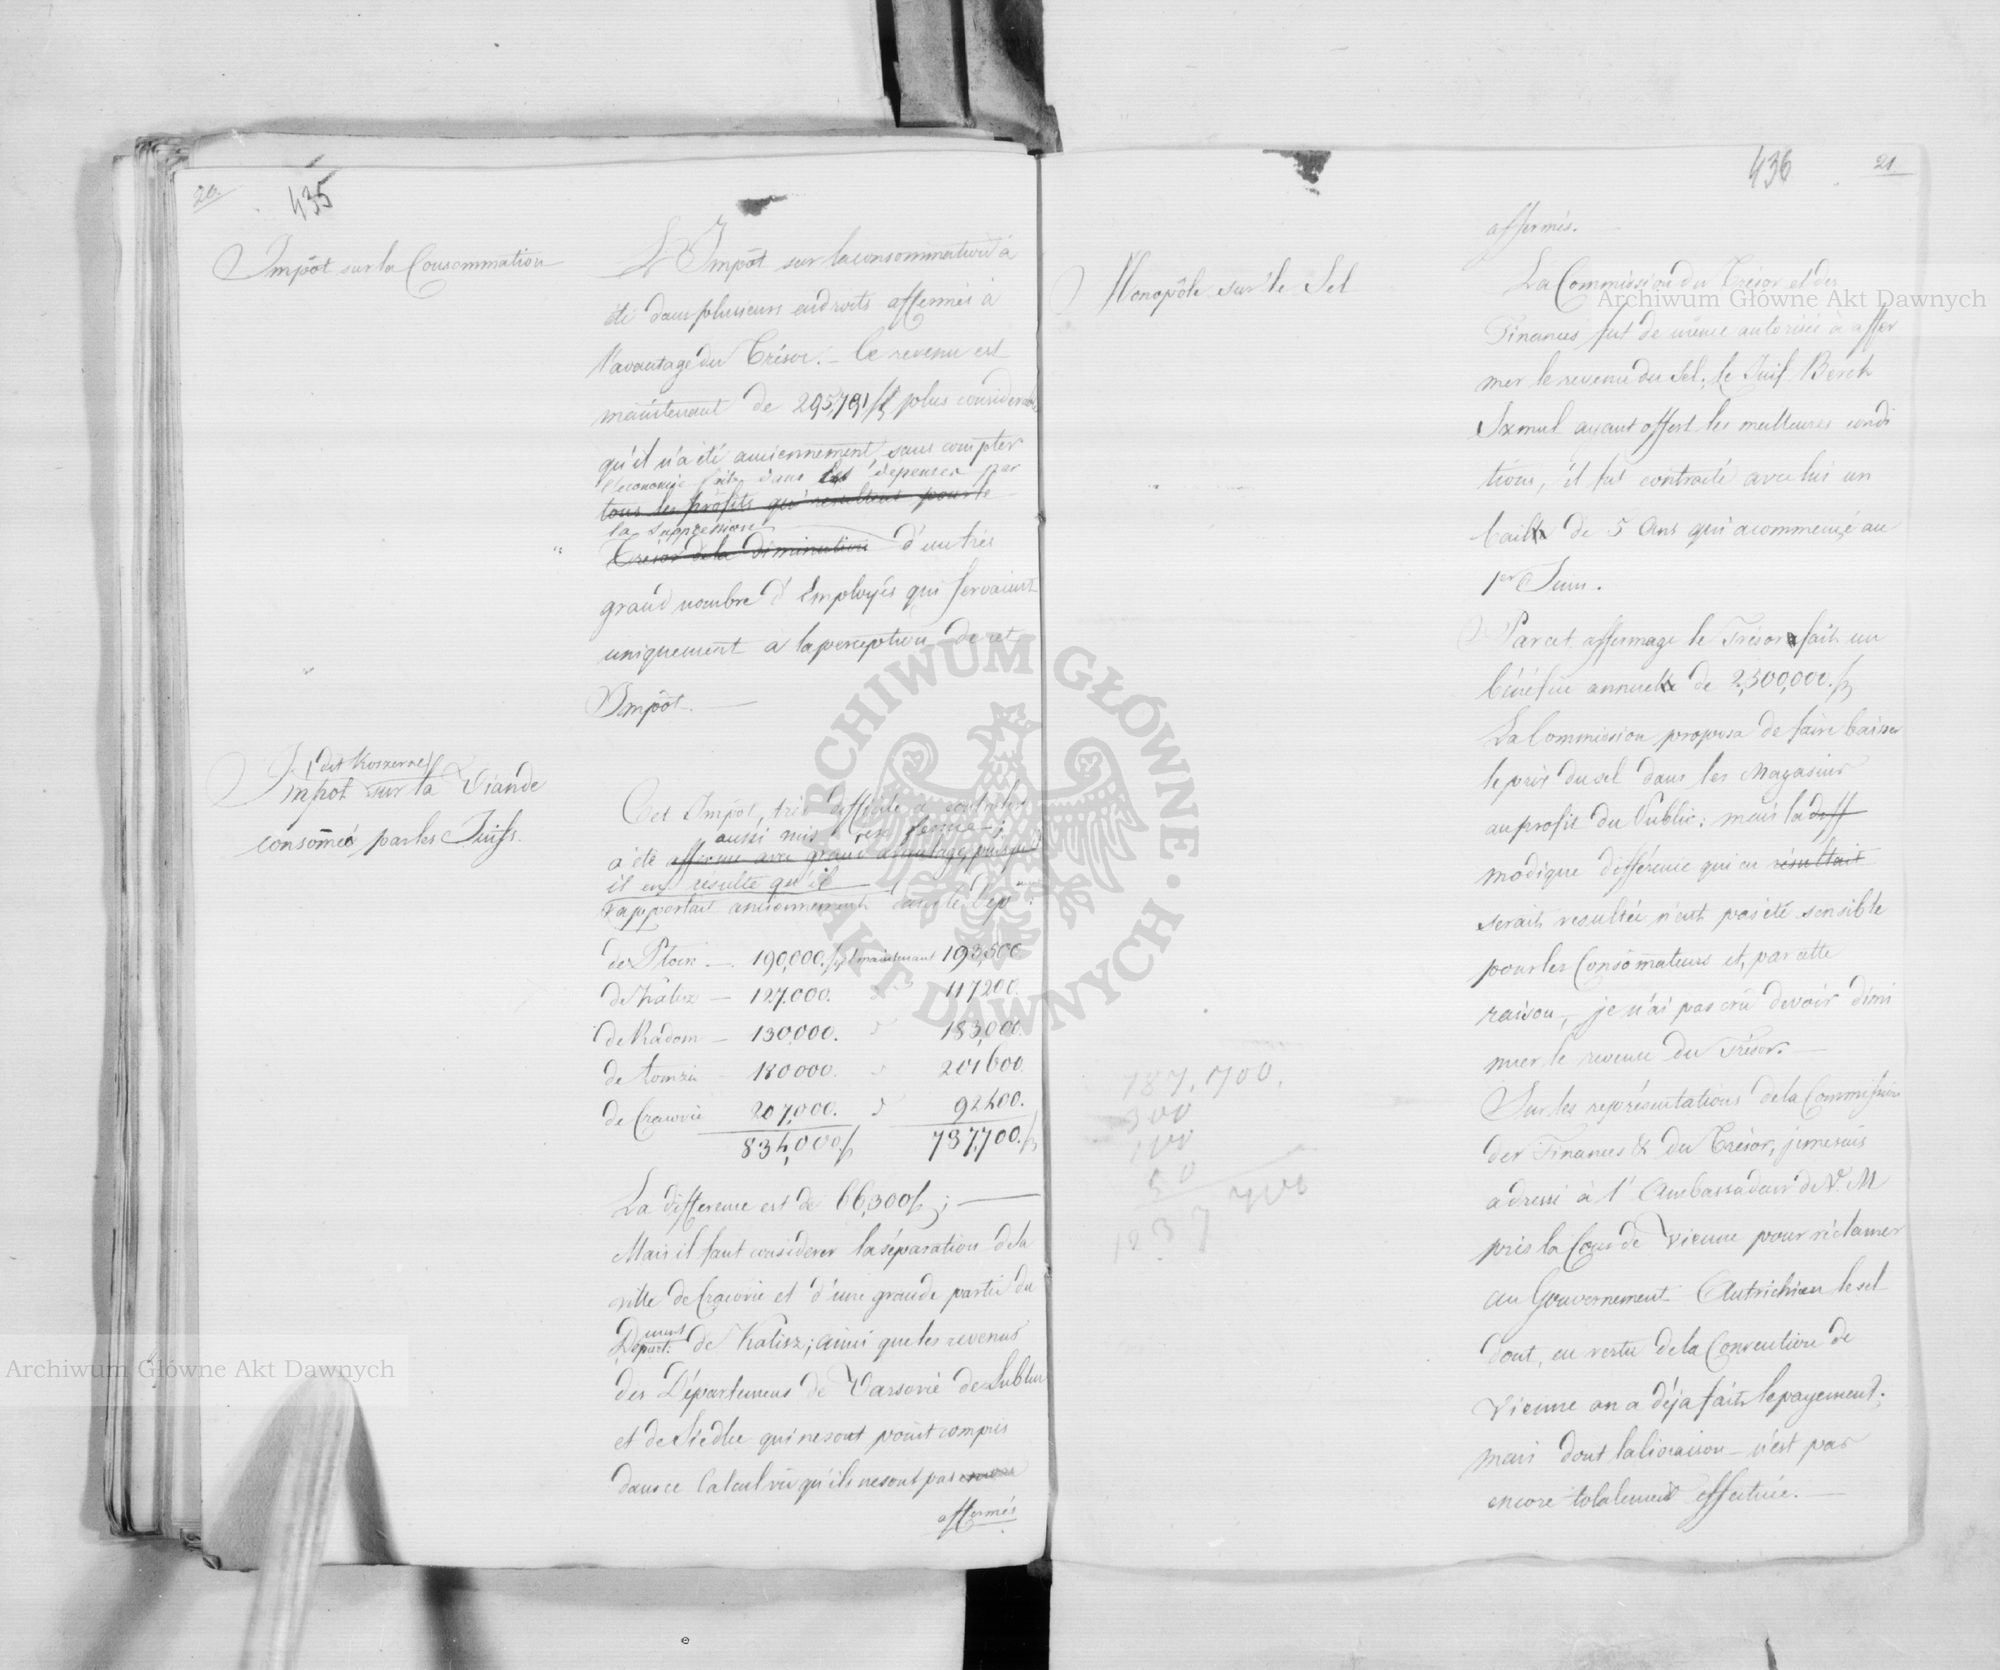 20.
435
Impôt sur la Consommation
L'Impôt sur la consommation a
été dans plusieurs endroits affermés à
l'avantage du Trésor. — Ce revenu est
maintenant de 295,791 f plus considerable
qu'il n'a été anciennement, sans compter
l'economie faite dans les depenses par
tous les profits qui resultent pour le
la suppression
Trésor de la diminution d'un très
grand nombre d'Employés qui servaient
uniquement à la perception de cet
Impôt. —
(dit Koszerne)
Impot sur la Viande
consomeé par les Juifs.
Cet Impôt, très difficile a controler
aussi mis en ferme;
a été affermé avec grand avantage, puisqu'il
il en résulte qu'il
rapportait anciennement dans le Dep:
de Plock — 190,000. f et maintenant 193,500
de Kalisz — 127.000. " 117200.
de Radom — 130,000. " 183,000.
de Lomza — 180000. " 201600
de Cracovie 207,000. " 92400.
834,000 f 787,700. f
La difference est de 66,300 f; —
Mais il faut considerer la séparation de la
ville de Cracovie et d'une grande partie du
Départ: ment de Kalisz; ainsi que les revenus
des Départemens de Varsovie de Lublin
et de Siedlce qui ne sont point compris
dans ce Calcul vû qu'ils ne sont pas encore
affermés
436
21
Monopôle sur le Sel
affermés.
La Commission du Trésor et des
Finances fut de même autorisée à affer
mer le revenu du Sel; le Juif Berek
Szmul ayant offert les meilleures condi
tions, il fut contracté avec lui un
bail de 5 Ans qui a commencé au
1er Juin.
Par cet affermage le Trésor a fait un
bénéfice annuel de 2,500,000. f
La Commission proposa de faire baisser
le prix du sel dans les Magasins
au profit du Public: mais la diff
modique différence qui en résultait
serait resultée n'eut pas été sensible
pour les Consômateurs et, par cette
raison, je n'ai pas crû devoir dimi
nuer le revenu du Trésor. —
Sur les représentations de la Commission
des Finances & du Trésor, je me suis
adressé à l'Ambassadeur de V. M
près la Cour de Vienne pour réclamer
au Gouvernement Autrichien le sel
dont, en vertu de la Convention de
Vienne on a déja fait le payement;
mais dont la livraison n'est pas
encore totalement effectuée. —
787,700.
300
100
50
1237 700
Archiwum Główne Akt Dawnych
Archiwum Główne Akt Dawnych
ARCHIWUM GŁÓWNE · AKT DAWNYCH ·